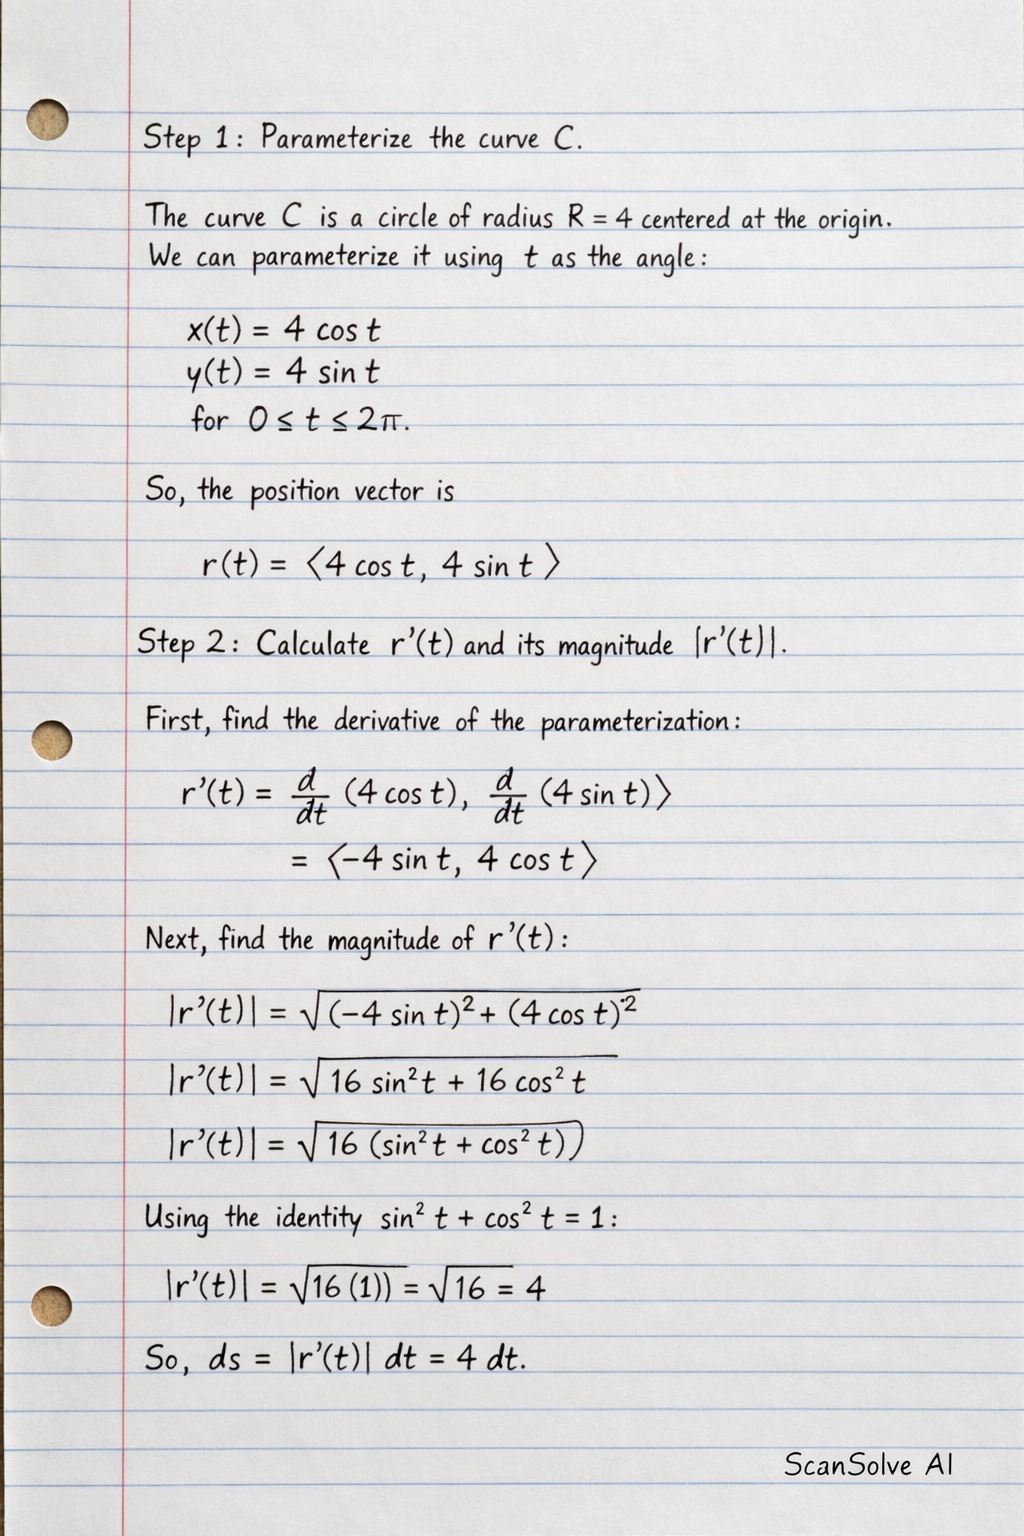 Step 1: Parameterize the curve C.
The curve C is a circle of radius R = 4 centered at the origin.
We can parameterize it using t as the angle:
x(t) = 4 cos t
y(t) = 4 sin t
for 0 ≤ t ≤ 2π.
So, the position vector is
r(t) = ⟨4 cos t, 4 sin t⟩
Step 2: Calculate r'(t) and its magnitude |r'(t)|.
First, find the derivative of the parameterization:
r'(t) = d/dt (4 cos t), d/dt (4 sin t)⟩
= ⟨-4 sin t, 4 cos t⟩
Next, find the magnitude of r'(t):
|r'(t)| = √(-4 sin t)² + (4 cos t)²
|r'(t)| = √16 sin² t + 16 cos² t
|r'(t)| = √16 (sin² t + cos² t))
Using the identity sin² t + cos² t = 1:
|r'(t)| = √16 (1)) = √16 = 4
So, ds = |r'(t)| dt = 4 dt.
ScanSolve AI